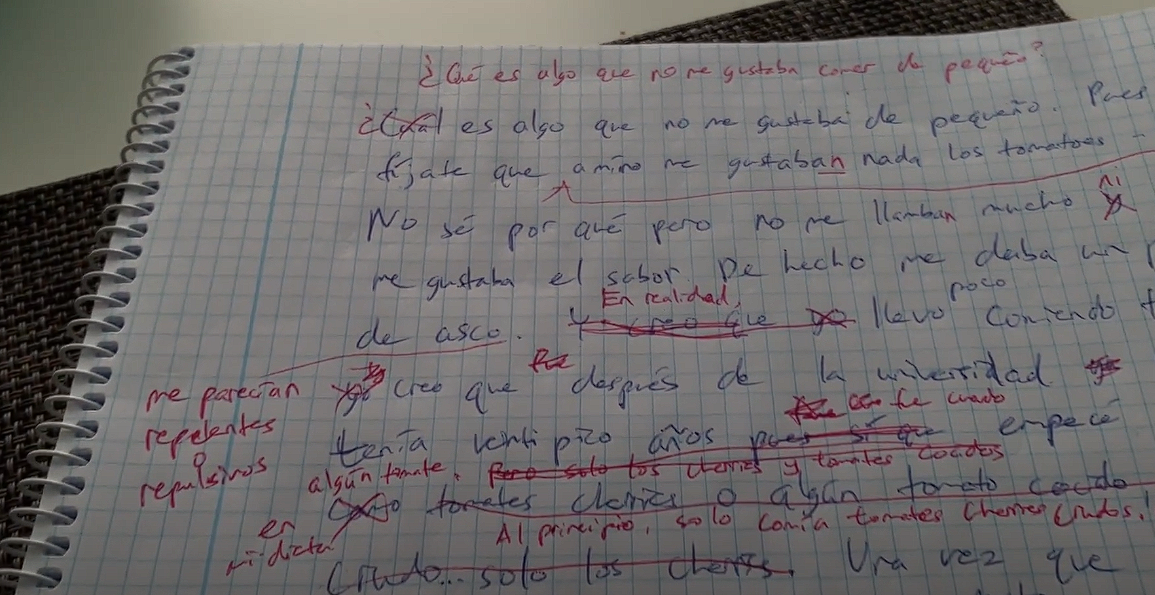 ¿Qué es algo que no me gustaba comer de pequeño?
¿Cuál es algo que no me gustaba de pequeño. Pues
fíjate que a mi no me gustaban nada los tomatoes
ni
No sé por qué pero no me llamban mucho
me gustaba el sabor. De hecho me daba un
poco
En realidad,
de asco. Y creo que yo llevo comiendo
me parecían
creo que después de la universidad
repelentes
o
repulsivos
fue cuado
tenía venti pico años pues sí que empecé
algún tomate. Pero solo los cherries y tomates cocidos
tomates cherries o algún tomato cocido
en
mi dicta
Al principio, solo comía tomates cherries crudos.
Crudo... solo los cherris. Una vez que